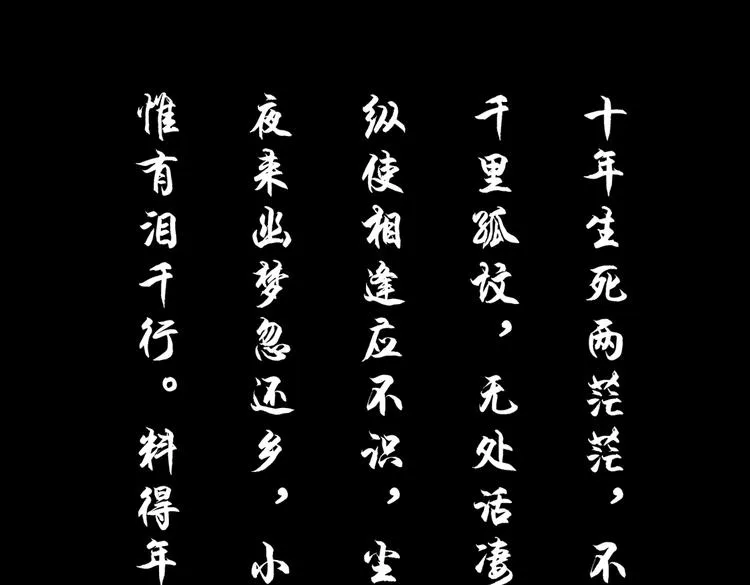 十年生死两茫茫，不
千里孤坟，无处话凄
纵使相逢应不识，尘
夜来幽梦忽还乡，小
惟有泪千行。料得年